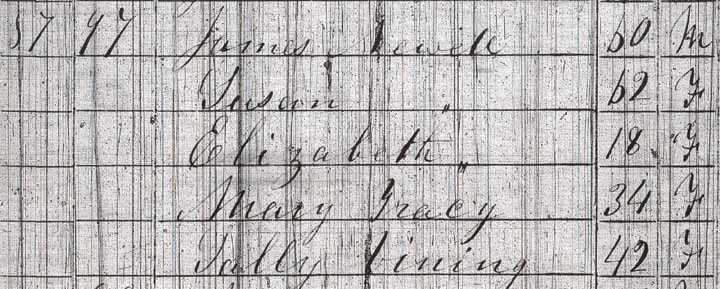 97 James 60 M
Susan " 62 F
Elizabeth " 18 F
Mary Tracy 34 F
Sally Vining 42 F